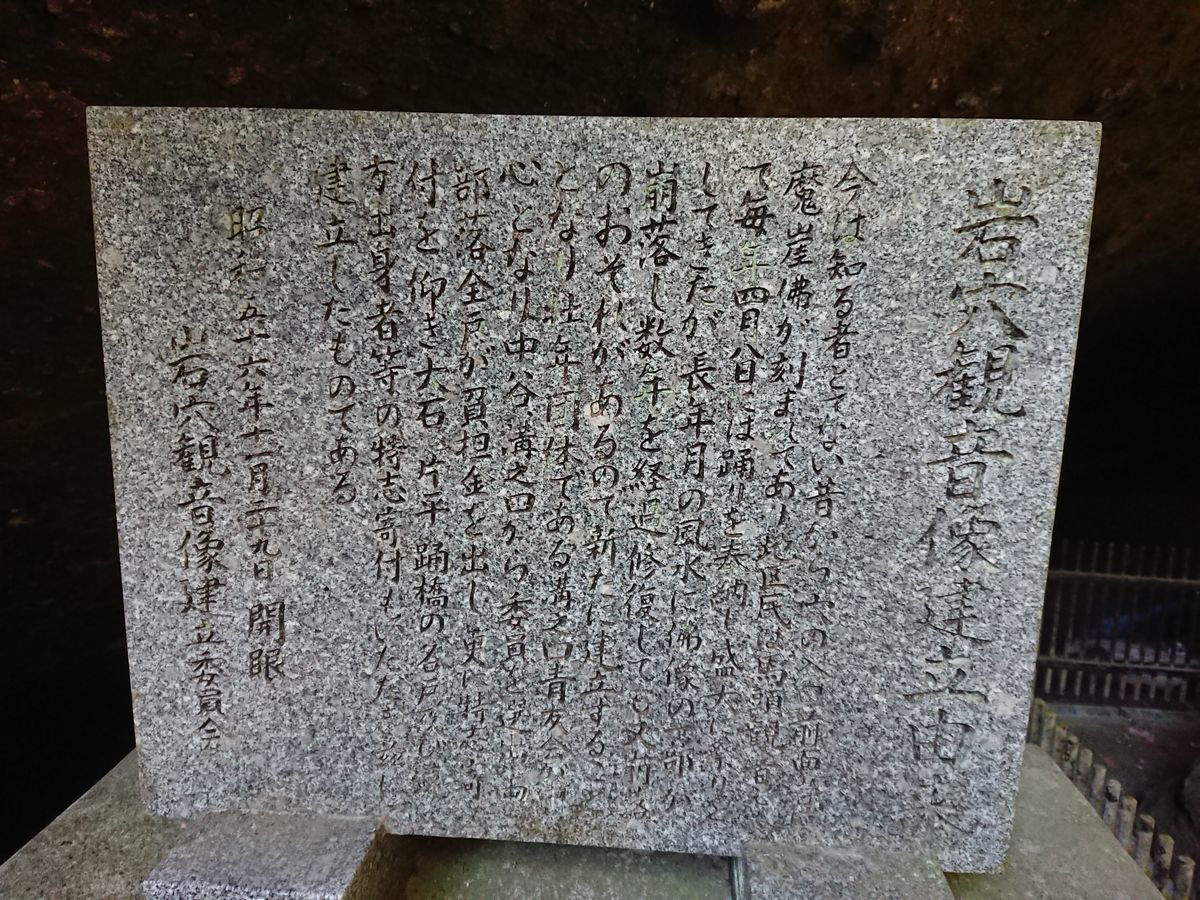 岩穴観音像建立由来
今は知る者とてない昔から穴の入口前面に
魔崖佛が刻まれてあり地区民は馬頭観音
で毎年四月八日には踊りを奉納し盛大に
してきたが長年月の風水に佛像の一部が
崩落し数年を経追修復しても又崩落
のおそれがあるので新たに建立する
となり壮年団体である溝之口青友会が
心となり中谷溝之口から委員を選出
部落全戸が負担金を出し更に特志寄
付を仰き大石片平踊橋の各戸
方出身者等の特志寄付もいただき
建立したものてある
昭和五十六年十一月二十九日開眼
岩穴観音像建立委員会